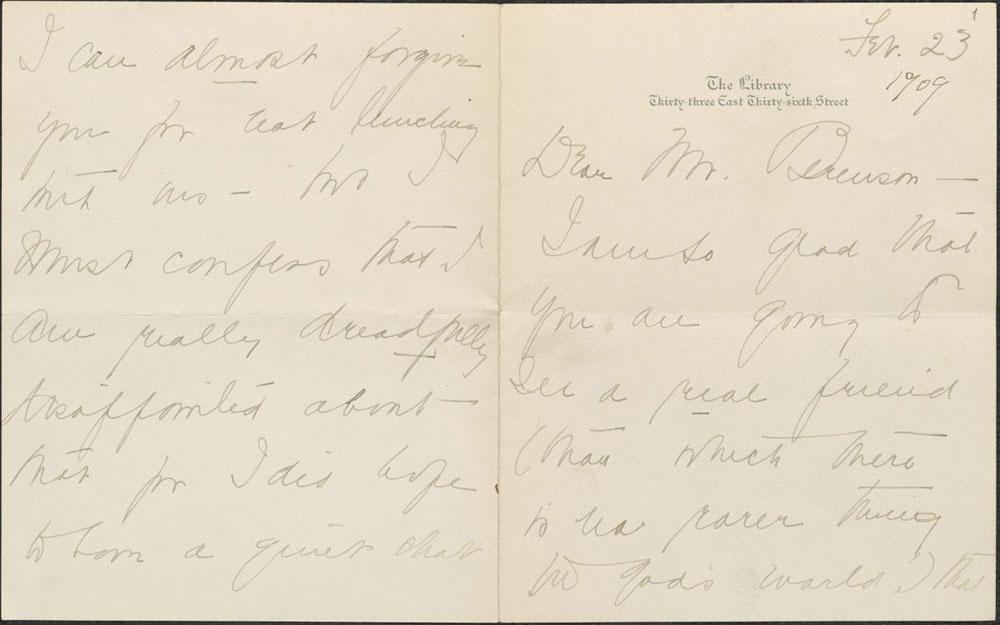 1
Feb. 23
1909
The Library
Thirty-three East Thirty-sixth Street
Dear Mr. Berenson —
I am so glad that
you are going to
see a real friend
(than which there
is no rarer thing
in God's world.) that
I can almost forgive
you for not lunching
with us — but I
must confess that I
am really dreadfully
disappointed about
that for I did hope
to have a quiet chat